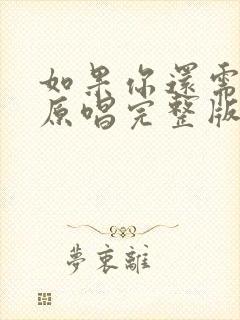 如果你還需
原唱完整版
夢裏離